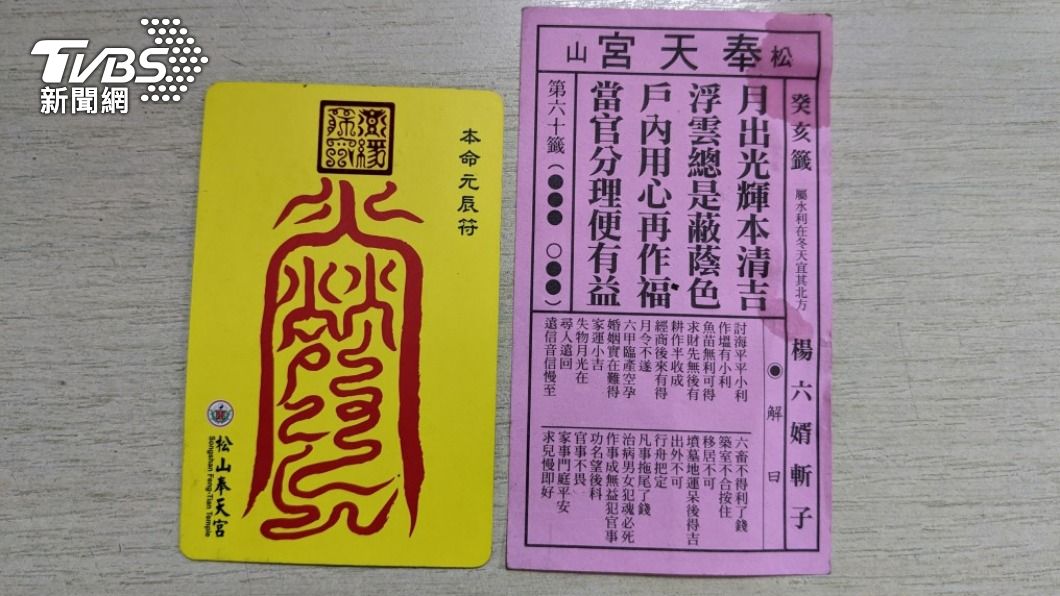 TVBS
新聞網
本命元辰符
松山奉天宮
Songshan Feng-Tian Temple
松山奉天宮
癸亥籤 屬水利在冬天宜其北方 楊六婿斬子
月出光輝本清吉
浮雲總是蔽蔭色
戶內用心再作福
當官分理便有益
第六十籤(●●● ○●●)
解曰
討海平平小利
作塭有小利
魚苗無利可得
求財先無後有
耕作半收成
經商後來有得
月令不遂
六甲臨產空孕
婚姻實在難得
家運小吉
失物月光在
尋人遠回
遠信音信慢至
六畜不得利了錢
築室不合按住
移居不可
墳墓地運呆後得吉
出外不可
行舟把定
凡事拖尾了錢
治病男女犯魂必死
作事成無益犯官事
功名望後科
官事不畏
家事門庭平安
求兒慢即好